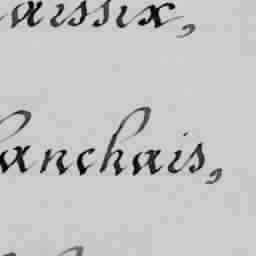 aissix,
hanchais,